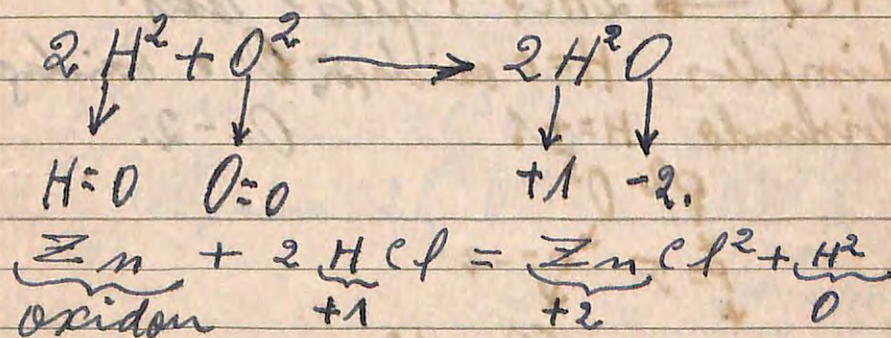 2 H² + O² → 2H²O
H=0 O=0 +1 -2.
Zn + 2 HCl = ZnCl² + H²
oxidon +1 +2 0